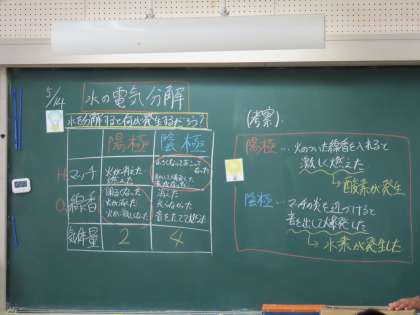 5/14
水の電気分解
水を分解すると何が発生するだろう?
陽極 陰極
H マッチ
火が消えた
燃えた
O 線香
明るくなった
火が消えた
火が激しくなった
消えた
気体量 2 4
(考察)
陽極…火のついた線香を入れると
激しく燃えた
酸素が発生
陰極…マッチの炎を近づけると
音を出して爆発した
水素が発生した